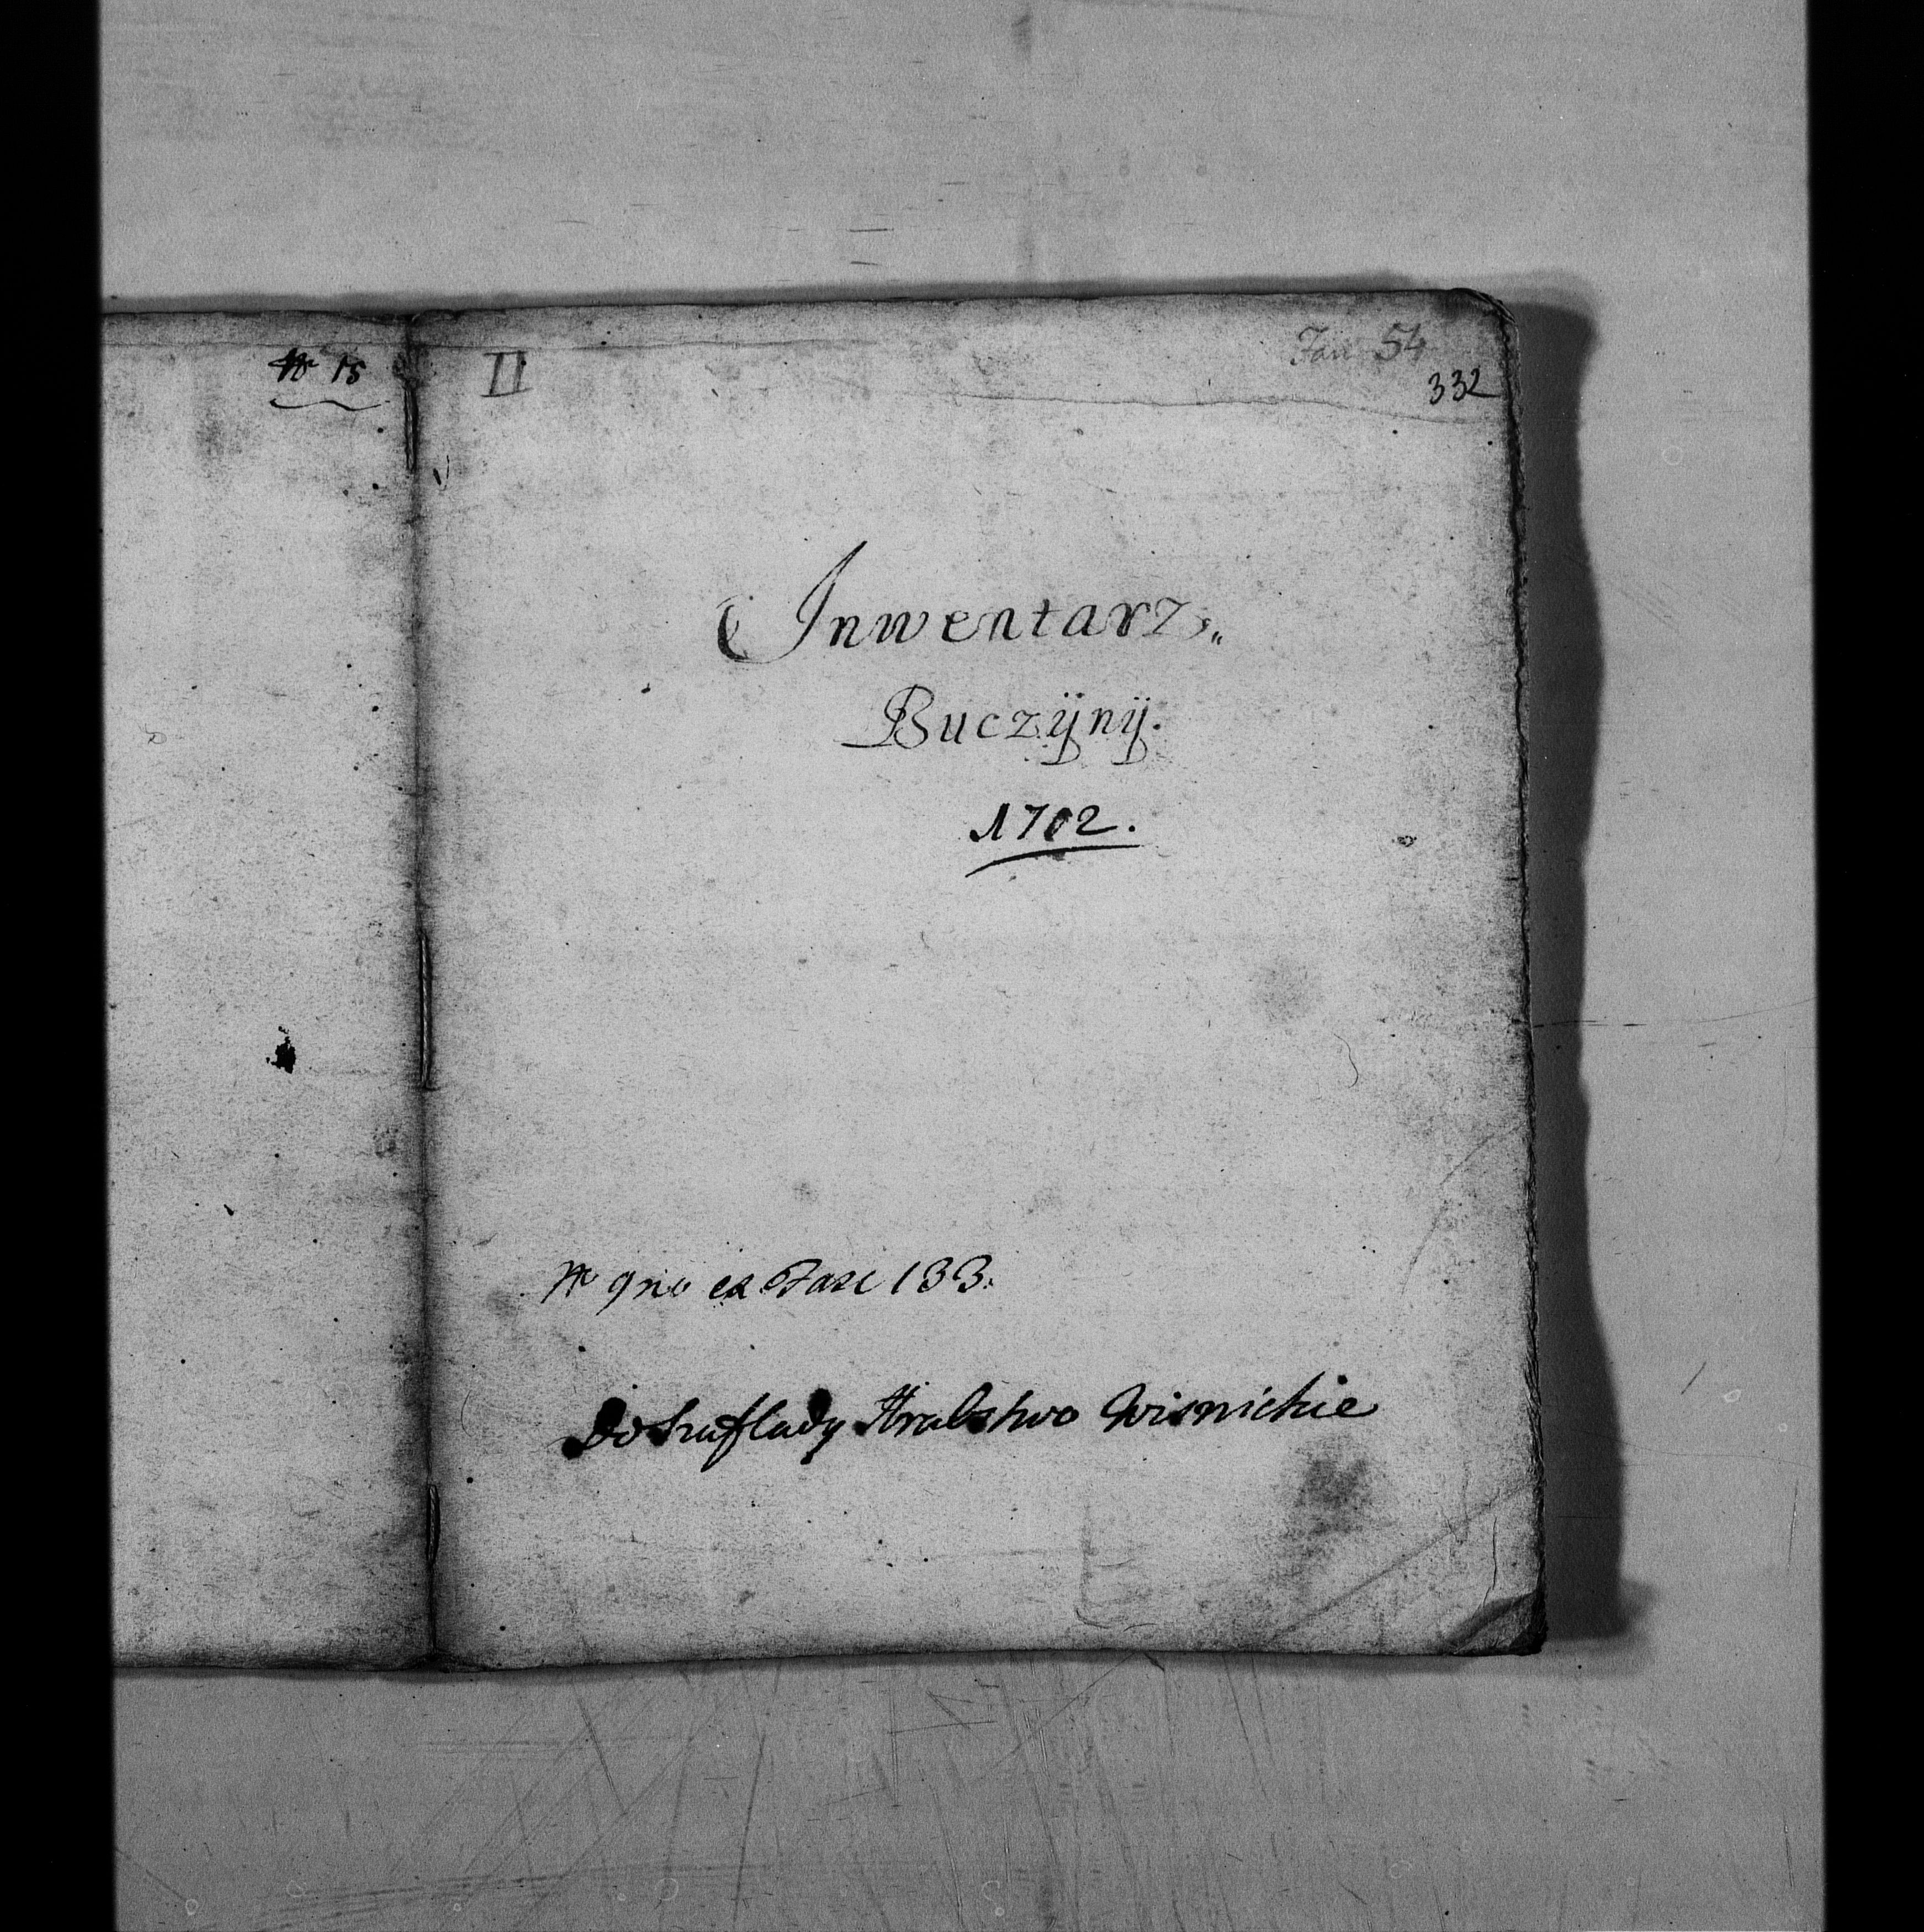 № 15
II
Fasc 54
332
Inwentarz
Buczÿnÿ.
1702.
№ 9no ex Fasc 133.
Do Szuflady Hrabstwo Wisnickie